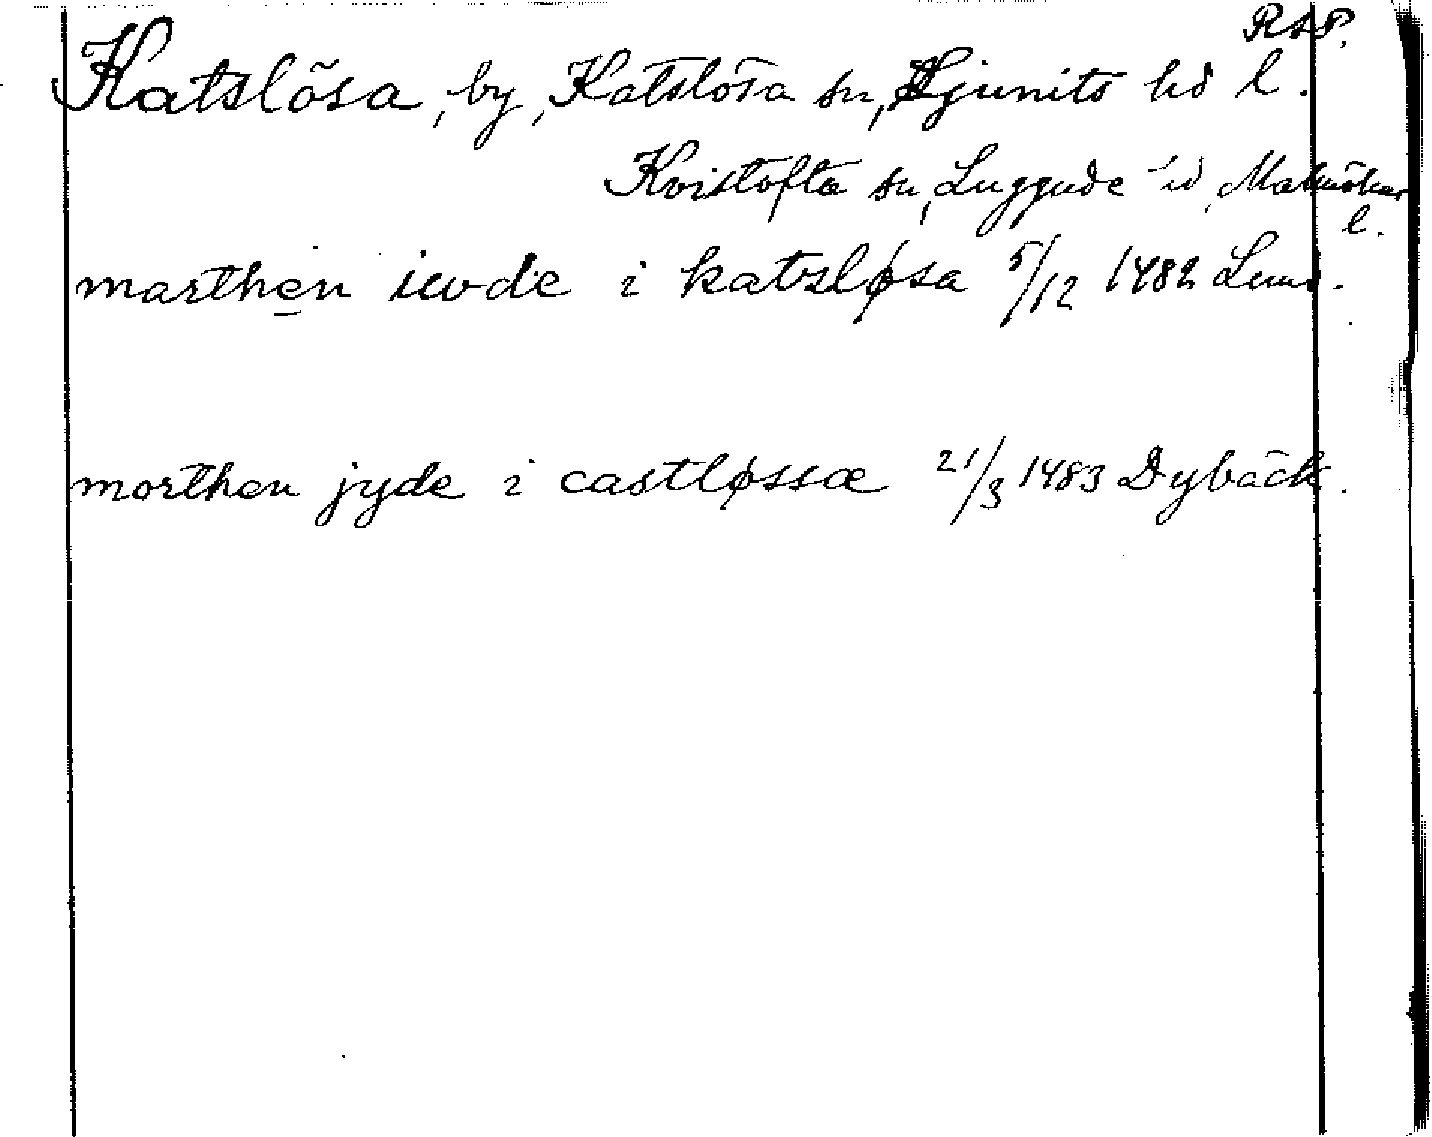 RAP.
Katslösa, by, Katslösa sn, Ljunits hd l.
Kvistofta sn, Luggude hd, Malmöhus
l.
marthen iwde i katzløsa 5/12 1482 Lund.
morthen jyde i castløssæ 21/3 1483 Dybäck.